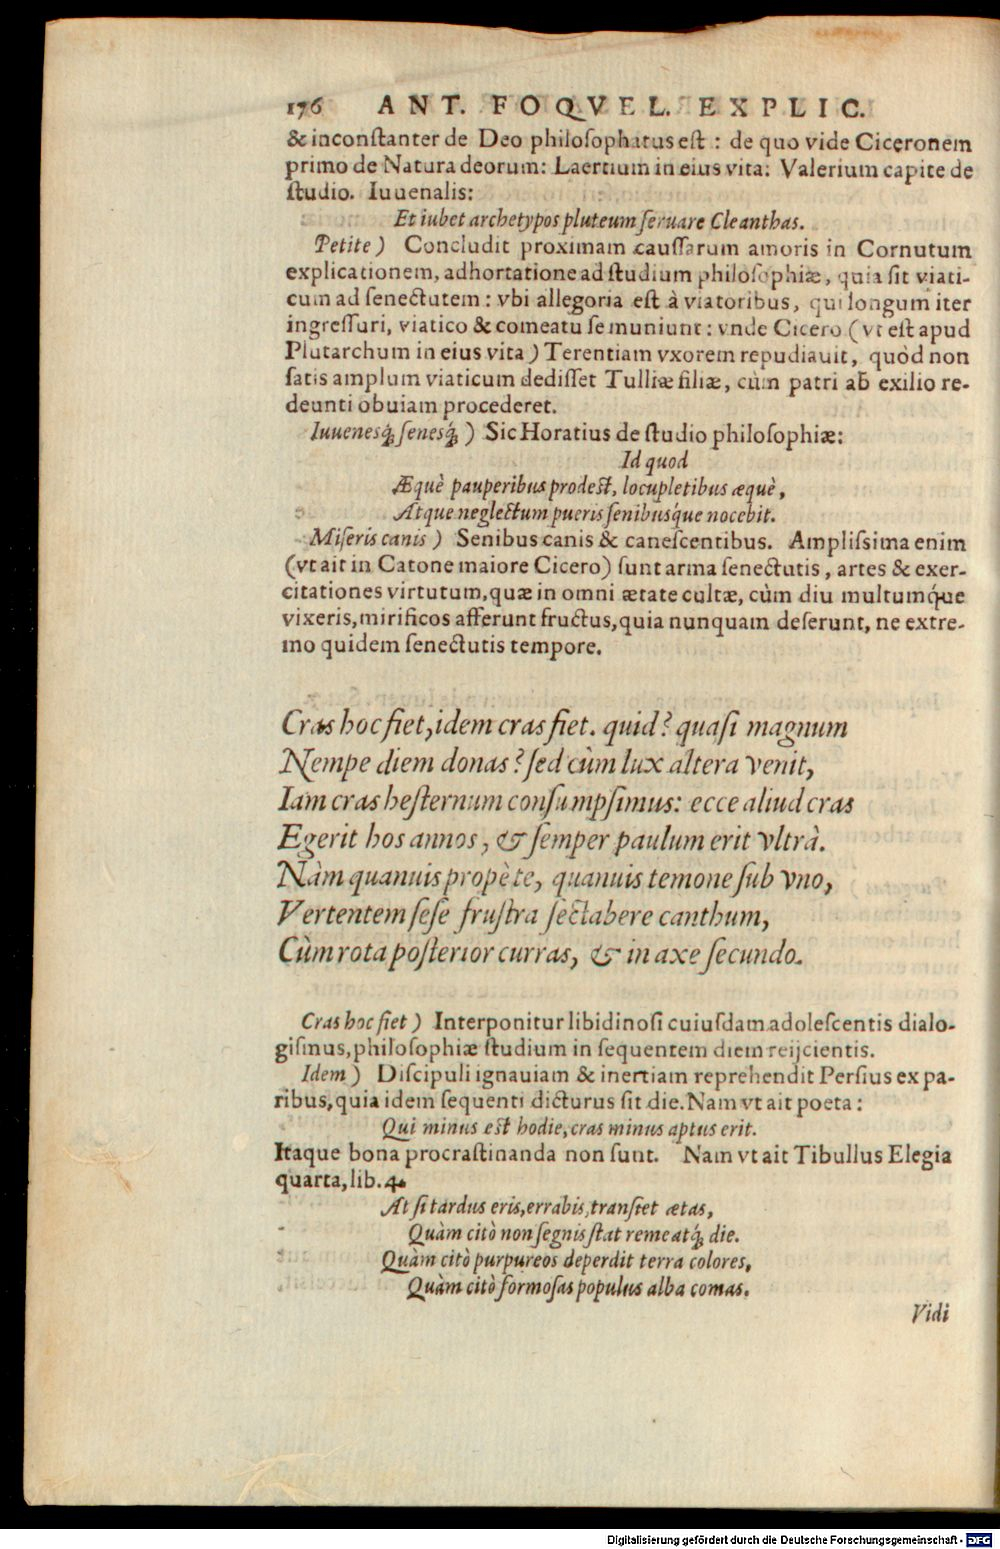 176 ANT. FOQVEL. EXPLIC.
& inconſtanter de Deo philoſophatus eſt : de quo vide Ciceronem
primo de Natura deorum: Laertium in eius vita: Valerium capite de
ſtudio. Iuuenalis:
Et iubet archetypos pluteum ſeruare Cleanthas.
Petite ) Concludit proximam cauſſarum amoris in Cornutum
explicationem, adhortatione ad ſtudium philoſophiæ, quia ſit viati-
cum ad ſenectutem : vbi allegoria eſt à viatoribus, qui longum iter
ingreſſuri, viatico & comeatu ſe muniunt : vnde Cicero ( vt eſt apud
Plutarchum in eius vita ) Terentiam vxorem repudiauit, quòd non
ſatis amplum viaticum dediſſet Tulliæ filiæ, cùm patri ab exilio re-
deunti obuiam procederet.
Iuuenesq́; ſenesq́; ) Sic Horatius de ſtudio philoſophiæ:
Id quod
Æquè pauperibus prodeſt, locupletibus æquè,
Atque neglectum pueris ſenibusque nocebit.
Miſeris canis ) Senibus canis & caneſcentibus. Ampliſsima enim
(vt ait in Catone maiore Cicero) ſunt arma ſenectutis, artes & exer-
citationes virtutum, quæ in omni ætate cultæ, cùm diu multumq́ue
vixeris, mirificos afferunt fructus, quia nunquam deſerunt, ne extre-
mo quidem ſenectutis tempore.
Cras hoc fiet, idem cras fiet. quid? quaſi magnum
Nempe diem donas? ſed cùm lux altera venit,
Iam cras heſternum conſumpſimus: ecce aliud cras
Egerit hos annos, & ſemper paulum erit vltrà.
Nàm quanuis propè te, quanuis temone ſub vno,
Vertentem ſeſe fruſtra ſectabere canthum,
Cùm rota poſterior curras, & in axe ſecundo.
Cras hoc fiet ) Interponitur libidinoſi cuiuſdam adoleſcentis dialo-
giſmus, philoſophiæ ſtudium in ſequentem diem reijcientis.
Idem ) Diſcipuli ignauiam & inertiam reprehendit Perſius ex pa-
ribus, quia idem ſequenti dicturus ſit die. Nam vt ait poeta :
Qui minus eſt hodie, cras minus aptus erit.
Itaque bona procraſtinanda non ſunt. Nam vt ait Tibullus Elegia
quarta, lib. 4.
At ſi tardus eris, errabis, tranſiet ætas,
Quàm citò non ſegnis ſtat remeatq́; die.
Quàm citò purpureos deperdit terra colores,
Quàm citò formoſas populus alba comas.
Vidi
Digitalisierung gefördert durch die Deutsche Forschungsgemeinschaft - DFG